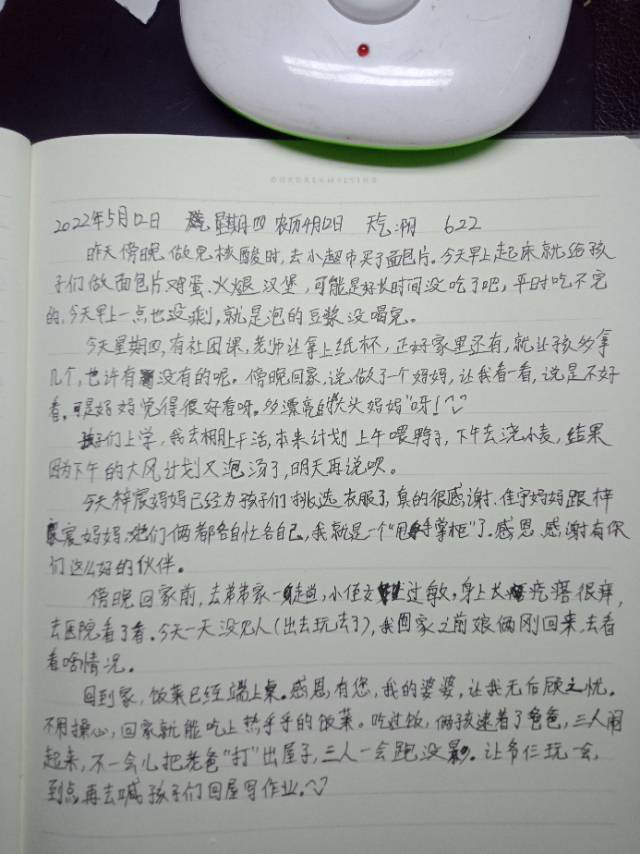 2022年5月12日 星期四 农历4月12日 天气:阴 622
昨天傍晚做完核酸时,去小超市买了面包片。今天早上起床就给孩
子们做面包片、鸡蛋、火腿汉堡,可能是好长时间没吃了吧,平时吃不完
的,今天早上一点也没剩,就是泡的豆浆没喝完。
今天星期四,有社团课,老师让拿上纸杯,正好家里还有,就让孩多拿
几个,也许有没有的呢。傍晚回家,说做了一个妈妈,让我看一看,说是不好
看。可是妈妈觉得很好看呀。多漂亮的"大头妈妈"呀!
孩子们上学,我去棚上干活,本来计划上午喂鸭子,下午去浇小麦,结果
因为下午的大风计划又泡汤了,明天再说呗。
今天梓宸妈妈已经为孩子们挑选衣服了,真的很感谢,佳宇妈妈跟梓
宸妈妈,她们俩都各自忙各自己,我就是一个"甩手掌柜"了。感恩,感谢有你
们这么好的伙伴。
傍晚回家前,去弟弟家一趟,小侄女过敏,身上大疙瘩很痒,
去医院看了看。今天一天没见人(出去玩去了),我回家之前娘俩刚回来,去看
看啥情况。
回到家,饭菜已经端上桌。感恩有您,我的婆婆,让我无后顾之忧。
不用操心,回家就能吃上热乎乎的饭菜。吃过饭,俩孩逮着了爸爸,三人闹
起来,不一会儿把老爸"打"出屋子,三人一会跑没影。让爷仨玩一会,
到点再去喊孩子们回屋写作业。